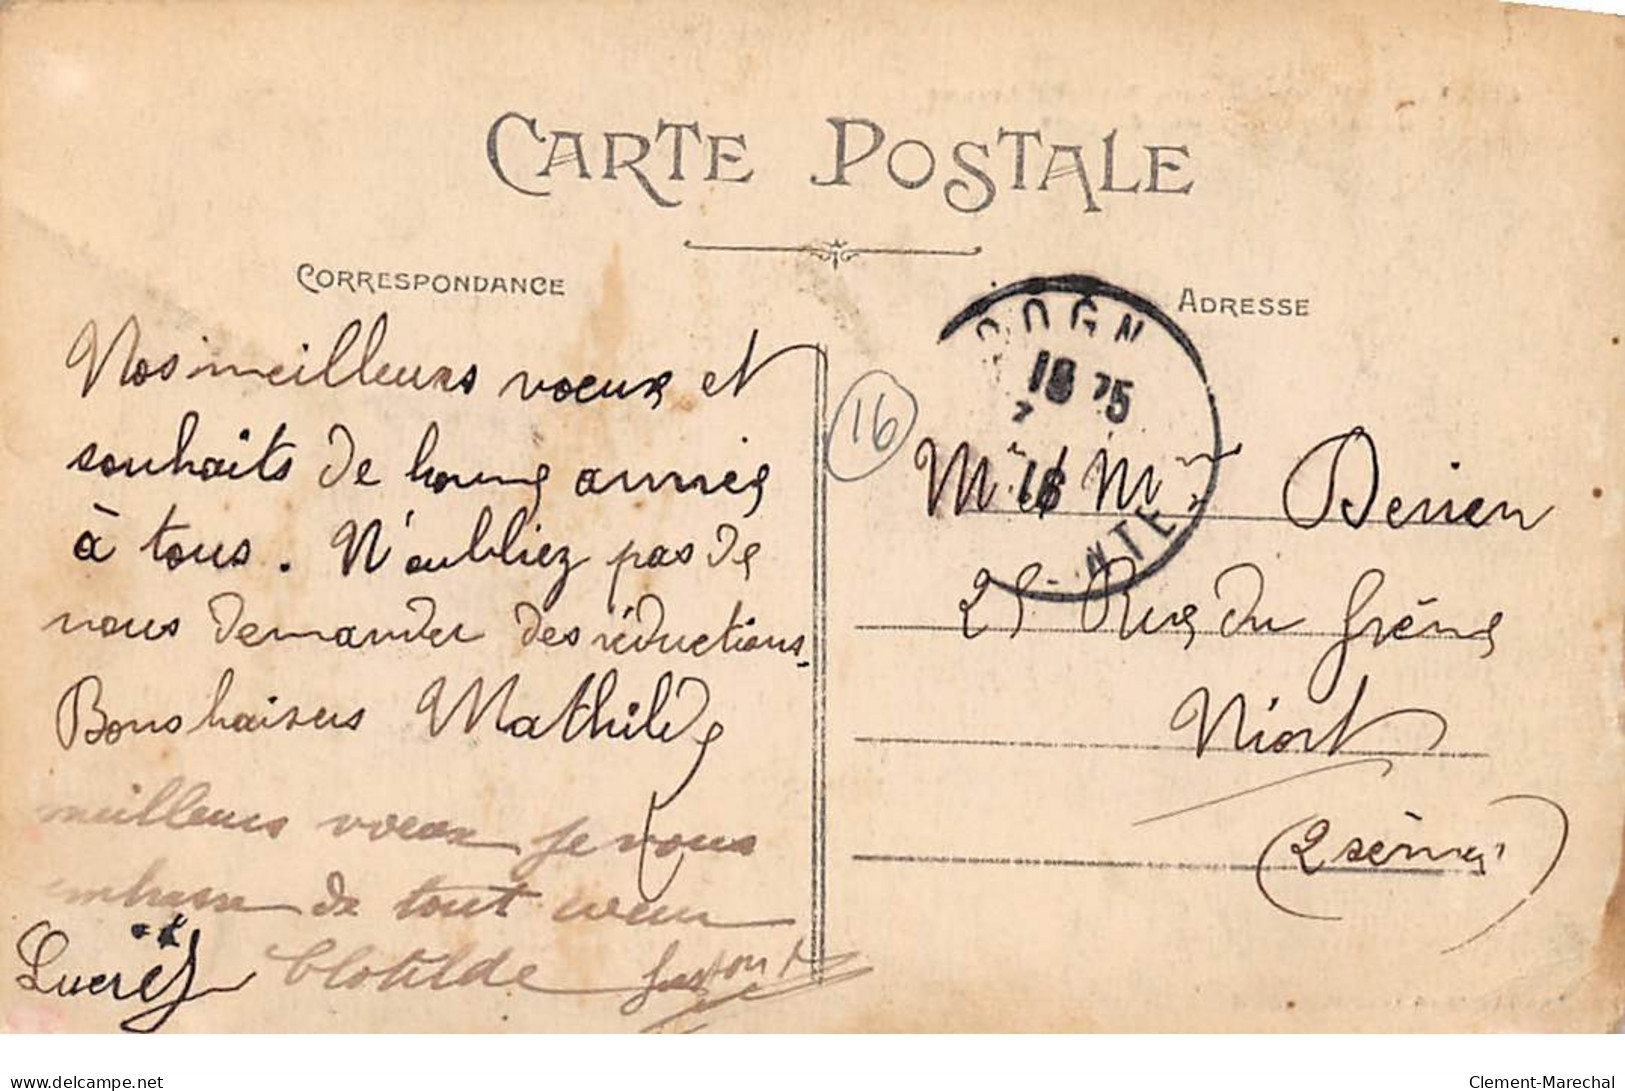 CARTE POSTALE
CORRESPONDANCE
Nos meilleurs voeux et
souhaits de bonne année
à tous. N'oubliez pas de
nous demander des réductions.
Bons baisers Mathilde
meilleurs voeux je vous
embrasse de tout coeur
Clotilde Gaston
ADRESSE
16
COGN
18 75
16
NTE
Mr & Mme Derrien
25 Rue du Grêne
Niort
(2 sèvres)
delcampe.net
Clement-Marechal